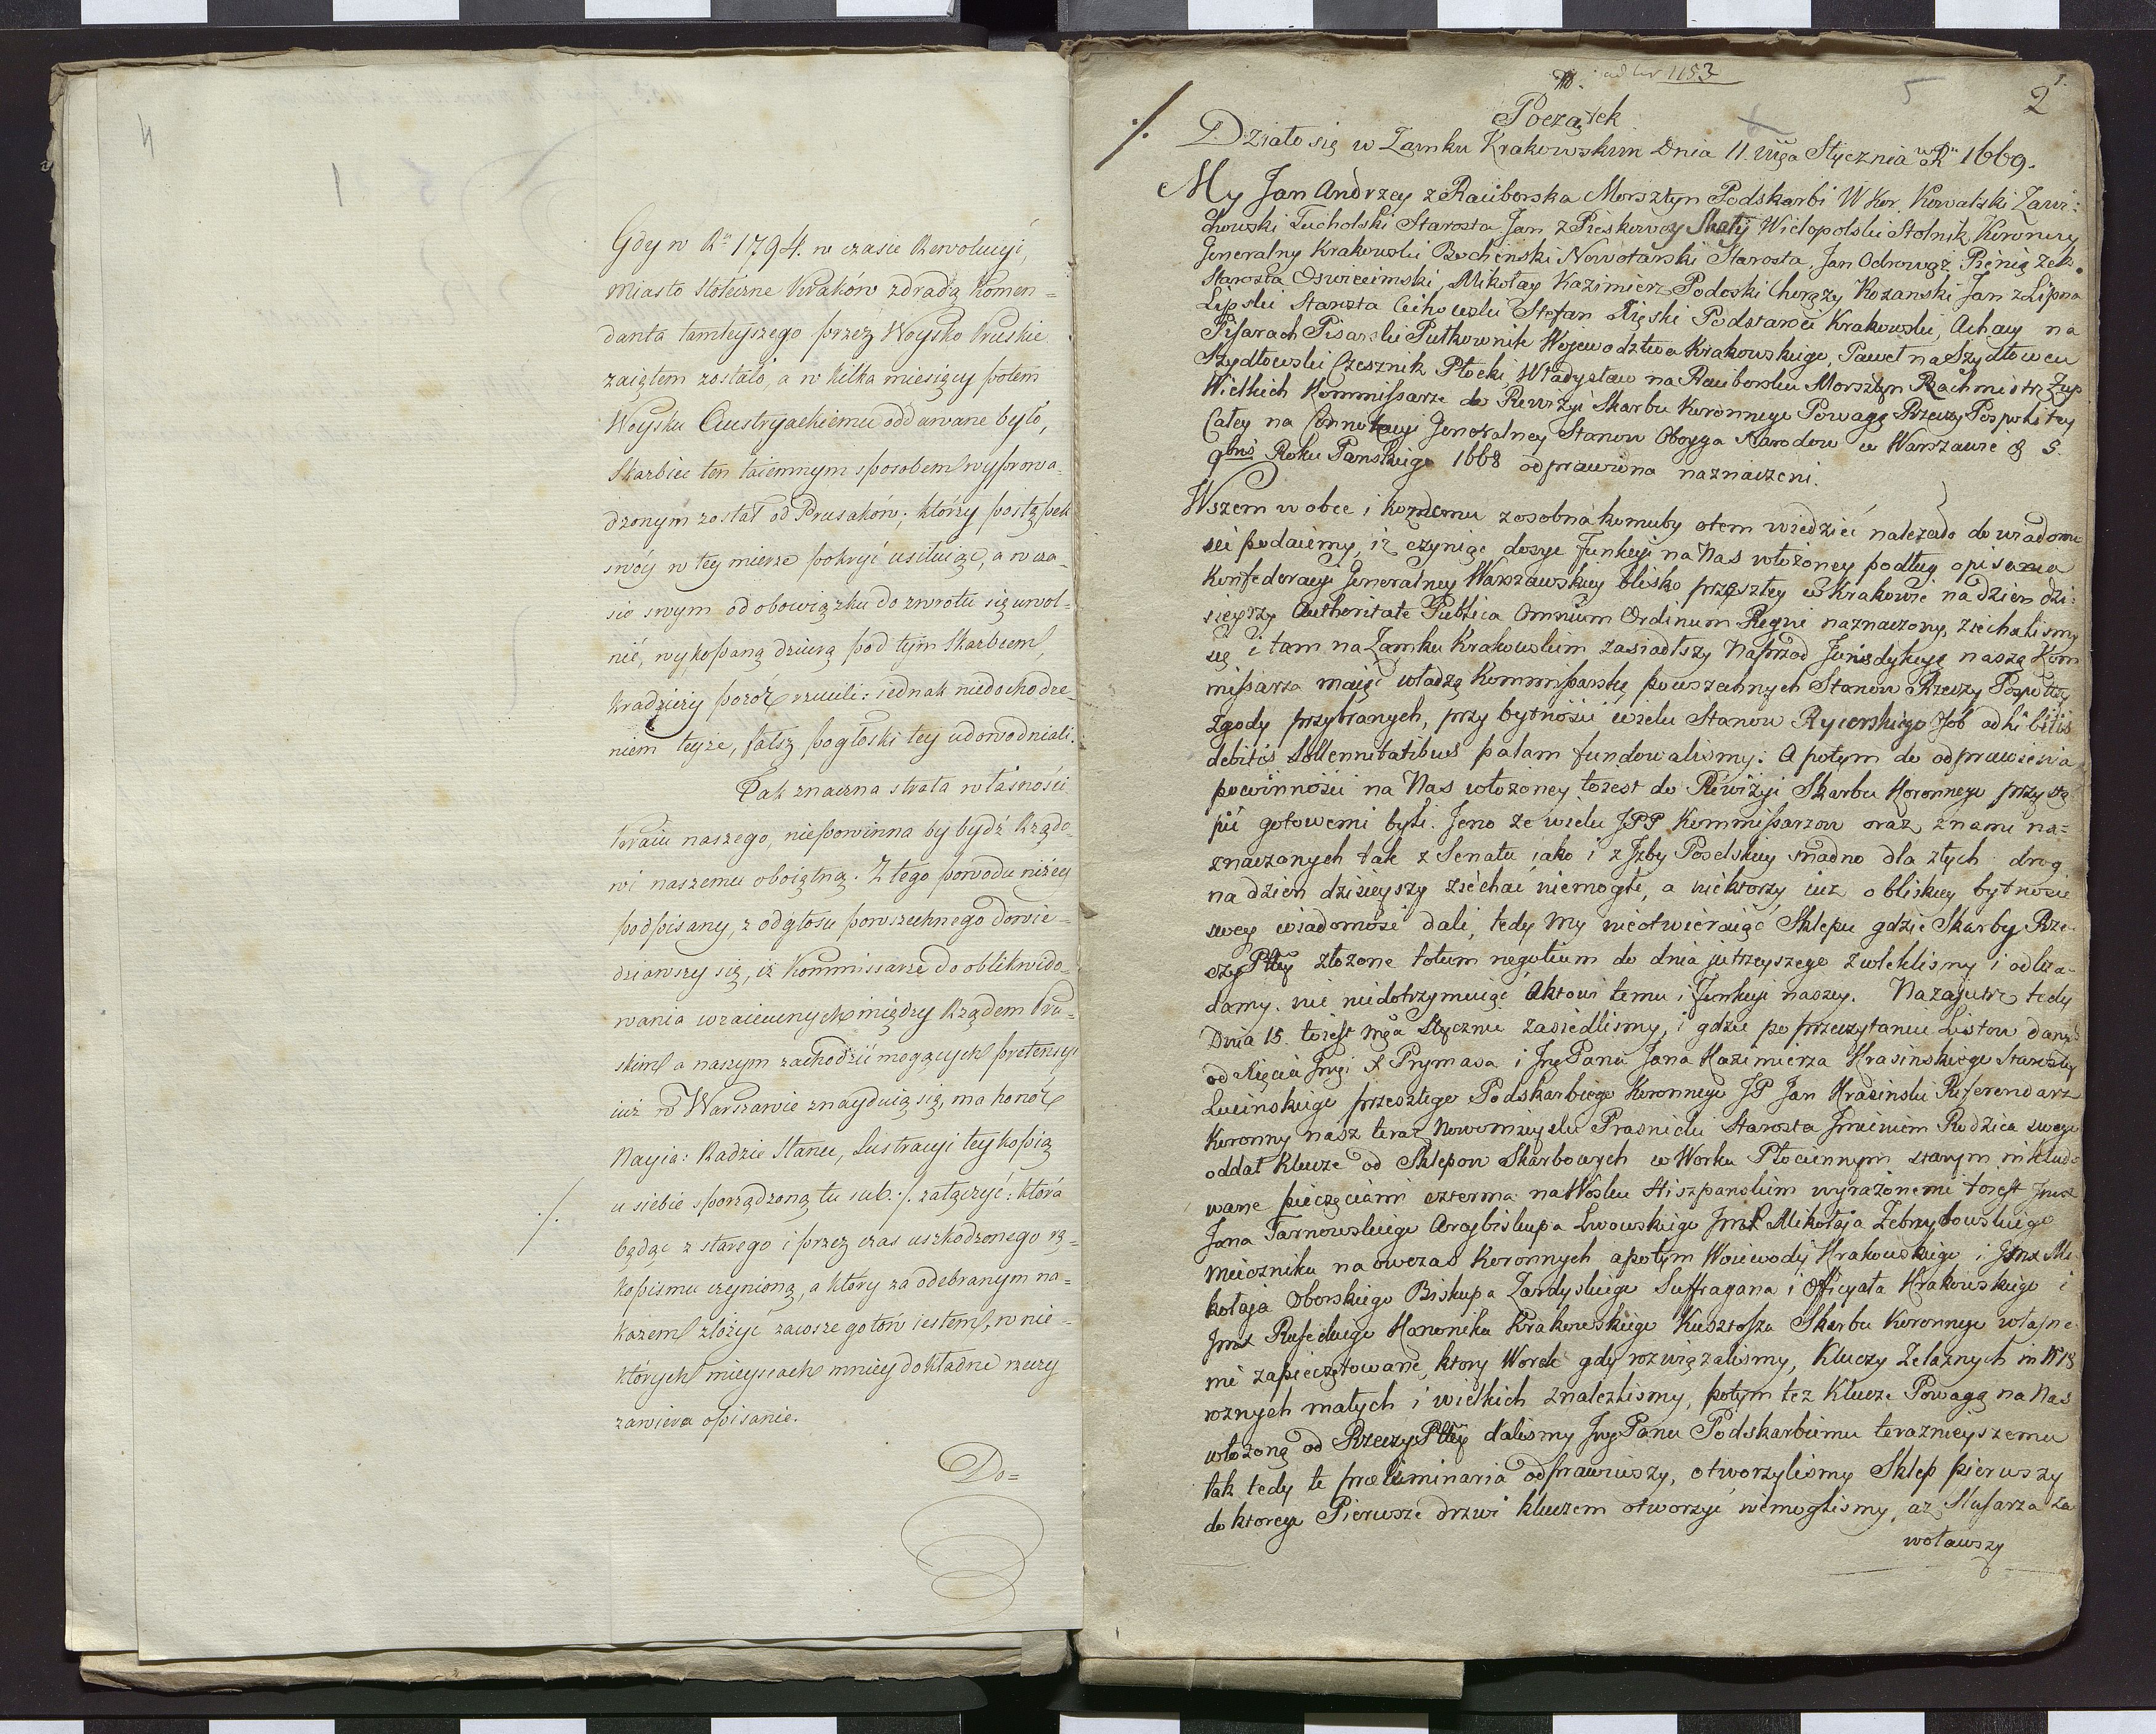 4
1
Gdy w Ru 1794. w czasie Rewolucyi,
Miasto stołeczne Kraków zdradą Komen=
danta tamteyszego przez Woysko Pruskie
zaiętem zostało, a w kilka miesięcy potem
Woysku Austryackiemu oddawane było,
Skarbiec ten taiemnym sposobem wyprowa=
dzonym został od Prusaków; którzy postępek
swóy w tey mierze pokryć usiłuiąc, a w cza=
sie swym od obowiązku do zwrotu się uwol=
nić, wykopaną dziurą pod tym Skarbcem,
kradzieży pozór rzucili: iednak niedochodze=
niem teyże, fałsz pogłoski tey udowodniali.
Tak znaczna strata własności
kraiu naszego, niepowinna by bydź Rządo=
wi naszemu oboiętną. Z tego powodu niżey
podpisany, z odgłosu powszechnego dowie=
dziawszy się, iż Kommissarze do oblikwido=
wania wzaiemnych między Rządem Pru=
skim a naszym zachodzić mogących pretensyi
iuż w Warszawie znayduią się, ma honor
Nayia: Radzie Stanu, Lustracyi tey kopią
u siebie sporządzoną tu sub ·/. załączyć: która
·/.
będąc z starego i przez czas uszkodzonego rę=
kopismu czynioną, a który za odebranym na=
kazem złożyć zawsze gotów iestem, w nie=
których mieyscach mniey dokładne rzeczy
zawiera opisanie.
Do=
ad Nr 1153
5
2
1.
·/.
Początek
Działo się w Zamku Krakowskim Dnia 11. Mga Stycznia w Ru 1669.
My Jan Andrzey z Raciborska Morsztyn Podskarbi W Kor. Kowalski Zawi:
chowski Tucholski Starosta, Jan z Pieskowey Skały Wielopolski Stolnik Koronny
Generalny Krakowski Bochenski Nowotarski Starosta, Jan Odrowąż Pieniążek
Starosta Oswiecimski, Mikołay Kazimierz Podoski Chorąży Rozanski Jan z Lipna
Lipski Starosta Cichowski Stefan Xięski Podstarości Krakowski, Achacy na
Pisarach Pisarski Pułkownik Wojewodztwa Krakowskiego, Paweł na Szydłowcu
Szydłowski Czesnik Płocki, Władysław na Raciborsku Morsztyn Rachmistrz Żup
Wielkich Kommissarze do Rewizyi Skarbu Koronnego Powagą Rzeczy Pospolitey
Całey na Konwokacyi Jeneralney Stanow Oboyga Narodow w Warszawie d 5.
9bris Roku Panskiego 1668 odprawiona naznaczeni.
Wszem w obec i kozdemu zosobna komuby otem wiedzieć należało do wiadomo
sci podaiemy, iż czyniąc dosyc Funkcyi na Nas włożoney podług opisania
Konfederacyi Generalney Warszawskiey blisko przeszłey w Krakowie na dzien dzi:
sieyszy Authoritate Publica Omnium Ordinum Regni naznaczony, ziechalismy
się i tam na Zamku Krakowskim zasiadłszy Naprzod Jurisdykcyą naszą Kom
missarza maiąc władzą Kommissarską powszechnych Stanow Rzeczy Pospoltey
zgody przybranych, przy bytności wielu Stanow Rycerskiego Job adhibitis
debitis Sollennitatibus palam fundowalismy: A potym do odprawienia
powinności na Nas włożoney tojest do Rewizyi Skarbu Koronnego przystą
pić gotowemi byli. Jeno że wielu JPP Kommissarzow oraz z nami na=
znaczonych tak z Senatu iako i z Jzby Poselskiey snadno dla złych drog
na dzien dzisieyszy ziechać niemogłe, a niektorzy iuz o bliskiey bytności
swey wiadomość dali, tedy my nieotwieraiąc Sklepu gdzie Skarby Rze
czy Pltey złożone totum negotium do dnia jutrzeyszego zwleklismy i odkła=
damy. nic niedotrzymuiąc Aktowi temu i Funkcyi naszey. Nazajutrz tedy
Dnia 15. tojest Mga Stycznia zasiedlismy, i gdzie po przeczytaniu Listow danych
od Xięcia Jmci X Prymasa i Jmg Pana Jana Kazimierza Krasinskiego Starosty
Lucinskiego przeszłego Podskarbiego Koronnego JP Jan Krasinski Referendarz
Koronny nasz teraz Nowomieyski Prasnicki Starosta Jmieniem Rodzica swego
oddał Klucze od Sklepow Skarbowych w Worku Płociennym starym inkludo
wane pieczęciami czterma na Wosku Hiszpanskim wyrażonemi tojest Jmx
Jana Tarnowskiego Arcybiskupa Lwowskiego JmP Mikołaja Zebrzydowskiego
Miecznika na owczas Koronnych apotym Woiewody Krakowskiego i Jmx Mi
kołaja Oborskiego Biskupa Laodyskiego Suffragana i Officyała Krakowskiego i
Jmx Rusieckiego Kanonika Krakowskiego Kusztosza Skarbu Koronnego własne
mi zapieczętowane, ktory Worek gdy rozwiązalismy, Kluczy Zelaznych in N 18
roznych małych i wielkich znalezlismy, potym tez Klucze Powagą na Nas
włożoną od Rzeczy Pltey dalismy Jmg Panu Podskarbiemu teraznieyszemu
tak tedy te præliminaria odprawiwszy, otworzylismy Sklep pierwszy
do ktorego Pierwsze drzwi kluczem otworzyć niemoglismy, az Slusarza za
woławszy